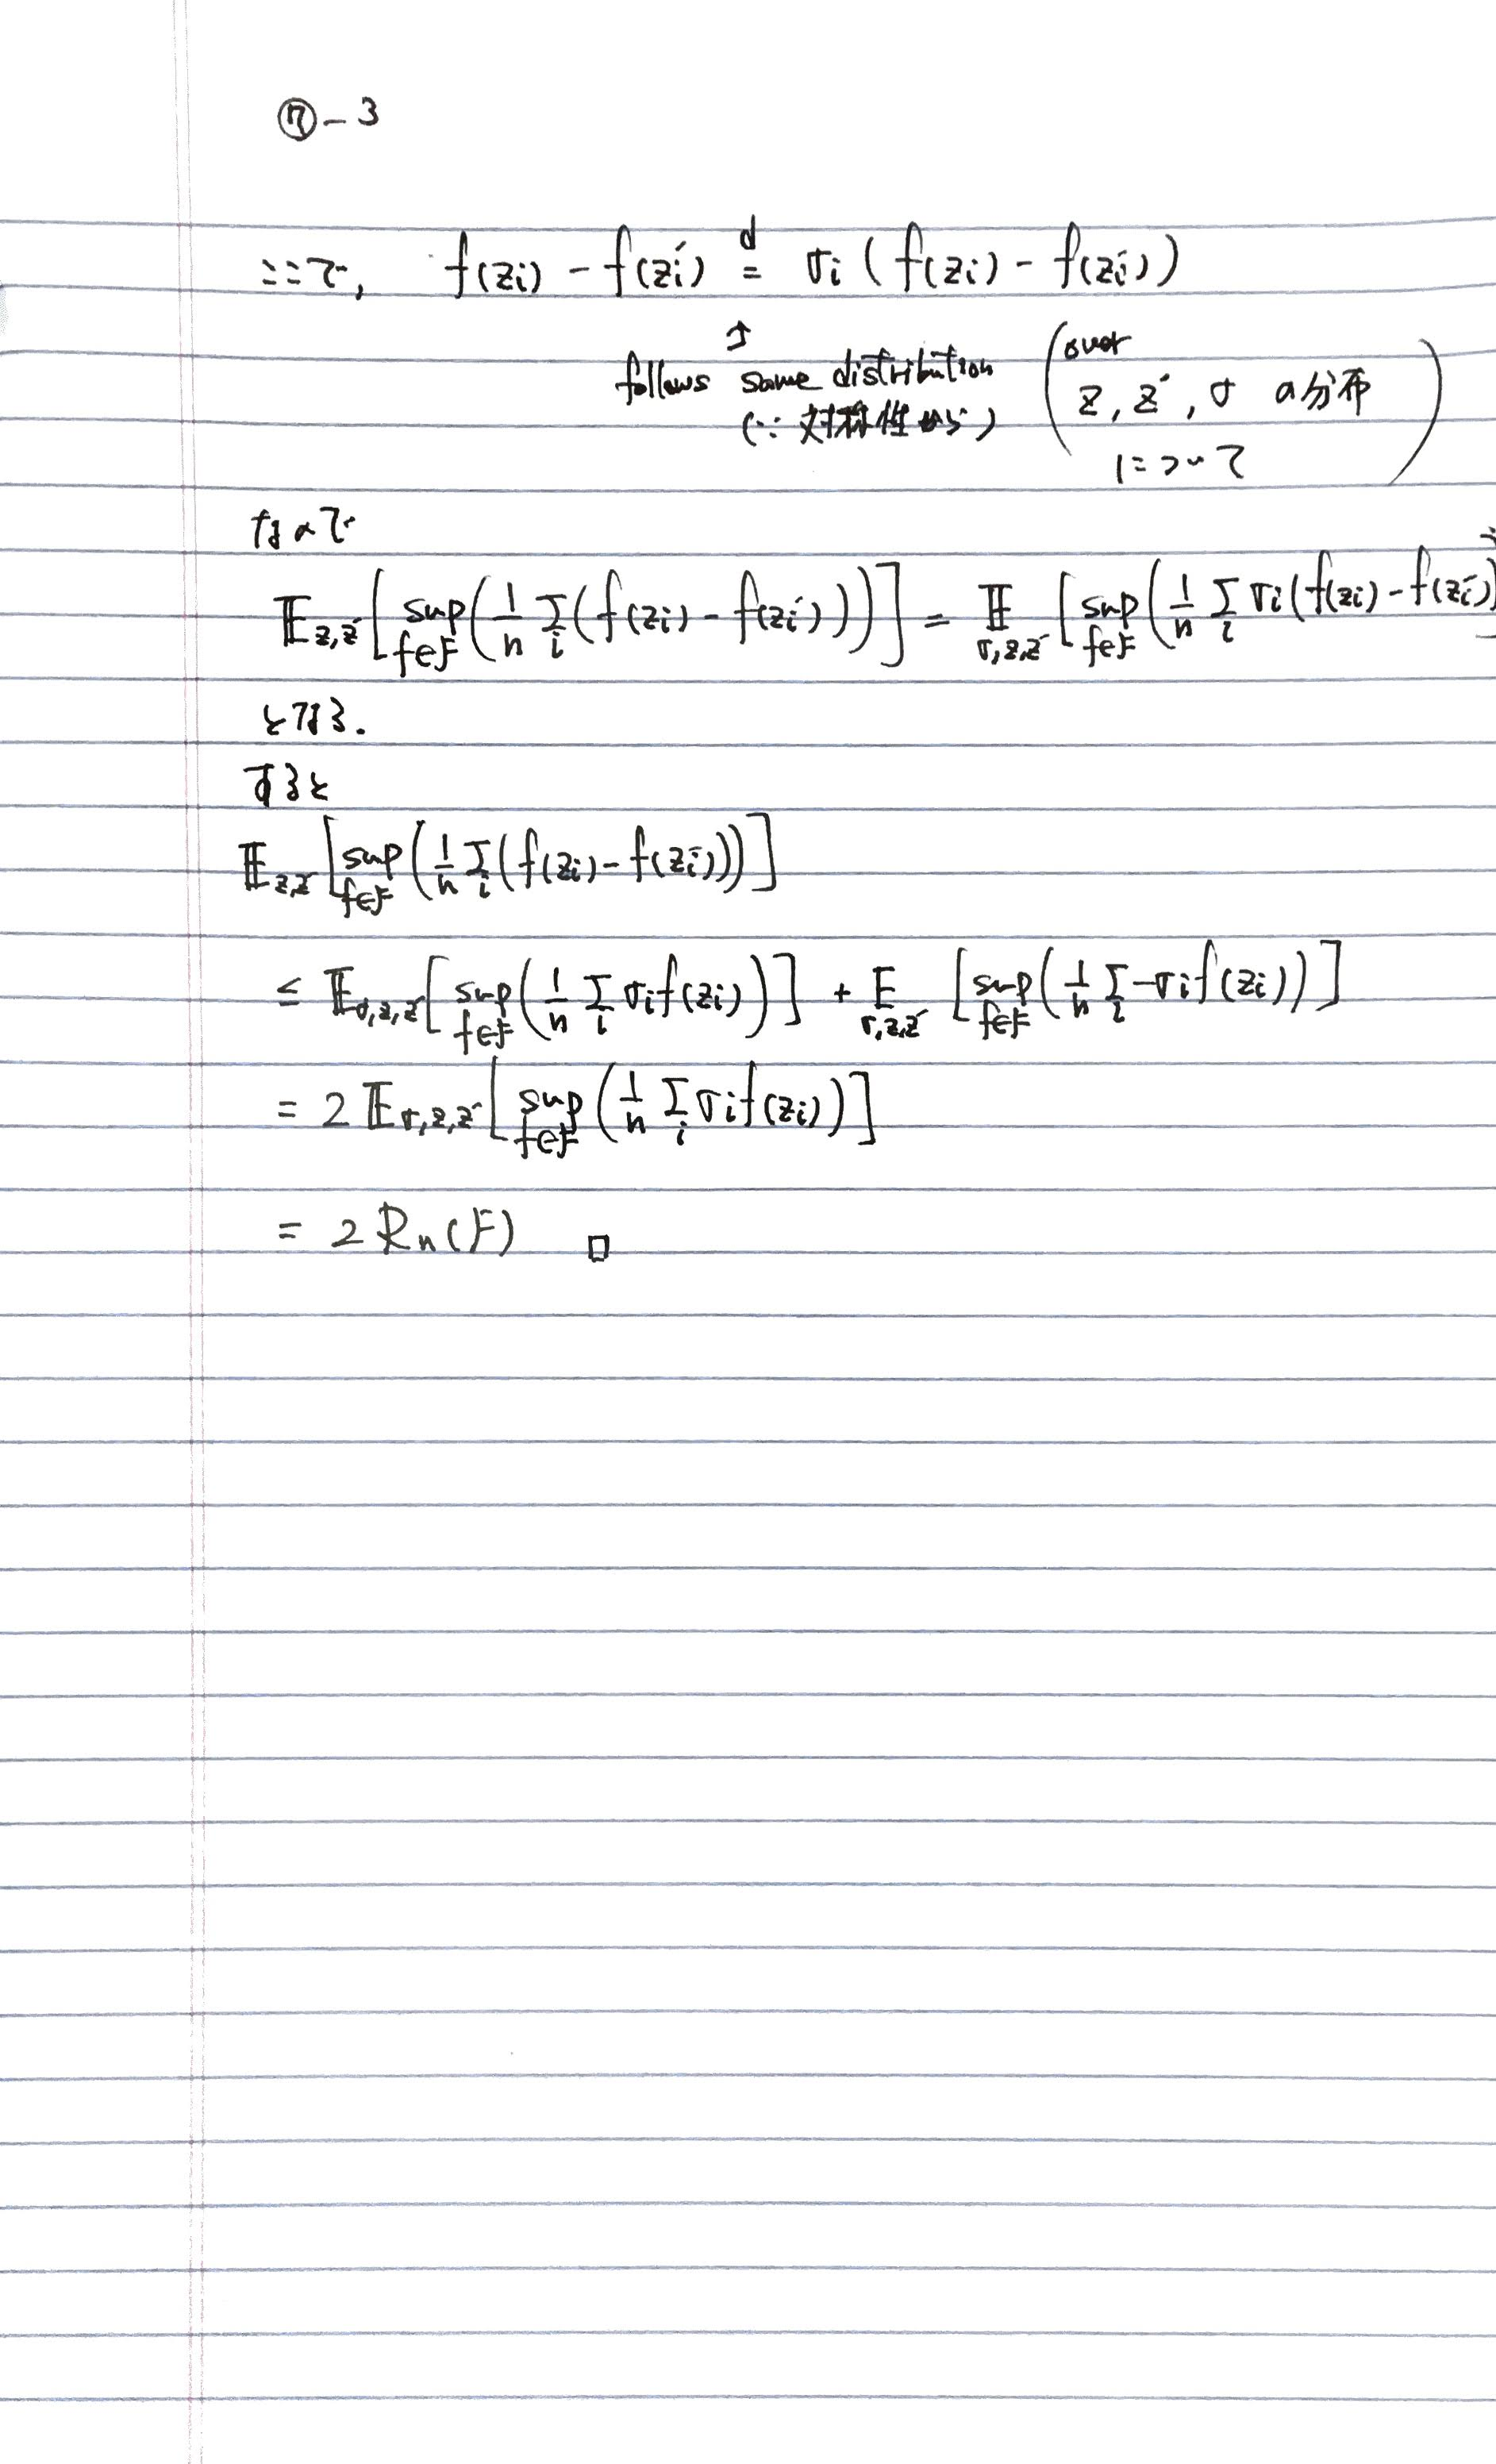 ⑰-3
ここで, f(zi) - f(zi') d= σi (f(zi) - f(zi'))
↑
follows same distribution (over
(∵ 対称性から) z, z', σ の分布
について)
なので
𝔼z,z' [sup f∈F (1/n Σi (f(zi) - f(zi')))] = 𝔼σ,z,z' [sup f∈F (1/n Σi σi(f(zi) - f(zi')
となる.
すると
𝔼z,z' [sup f∈F (1/n Σi (f(zi) - f(zi')))]
≤ 𝔼σ,z,z' [sup f∈F (1/n Σi σi f(zi))] + E σ,z,z' [sup f∈F (1/n Σi -σi f(zi))]
= 2 𝔼σ,z,z' [sup f∈F (1/n Σi σi f(zi))]
= 2 Rn(F) □